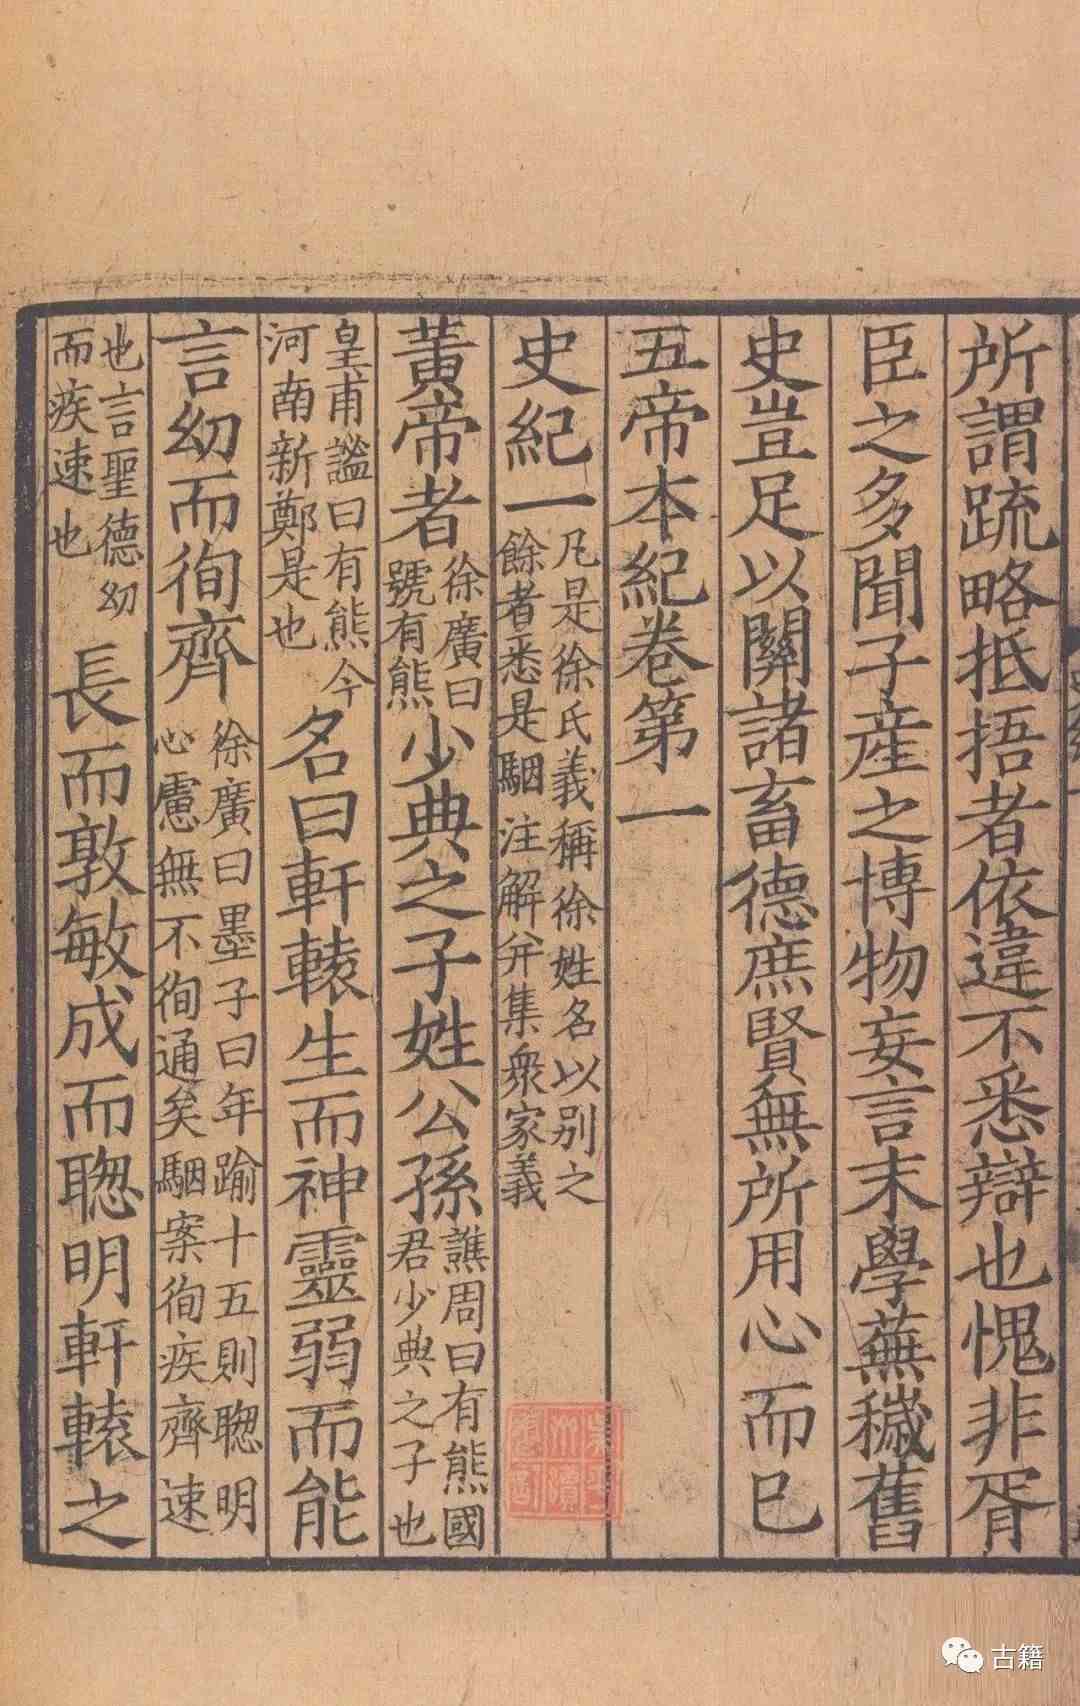 所謂䟽略抵捂者依違不悉辯也愧非胥
臣之多聞子產之博物妄言末學蕪穢舊
史豈足以關諸畜德庶賢無所用心而已
五帝本紀卷第一
史紀一
凡是徐氏義稱徐姓名以别之
餘者悉是駰注解并集衆家義
黃帝者
徐廣曰
號有熊
少典之子姓公孫
譙周曰有熊國
君少典之子也
皇甫謐曰有熊今
河南新鄭是也
名曰軒轅生而神靈弱而能
言幼而徇齊
徐廣曰墨子曰年踰十五則聦明
心慮無不徇通矣駰案徇疾齊速
也言聖德幼
而疾速也
長而敦敏成而聦明軒轅之
古籍